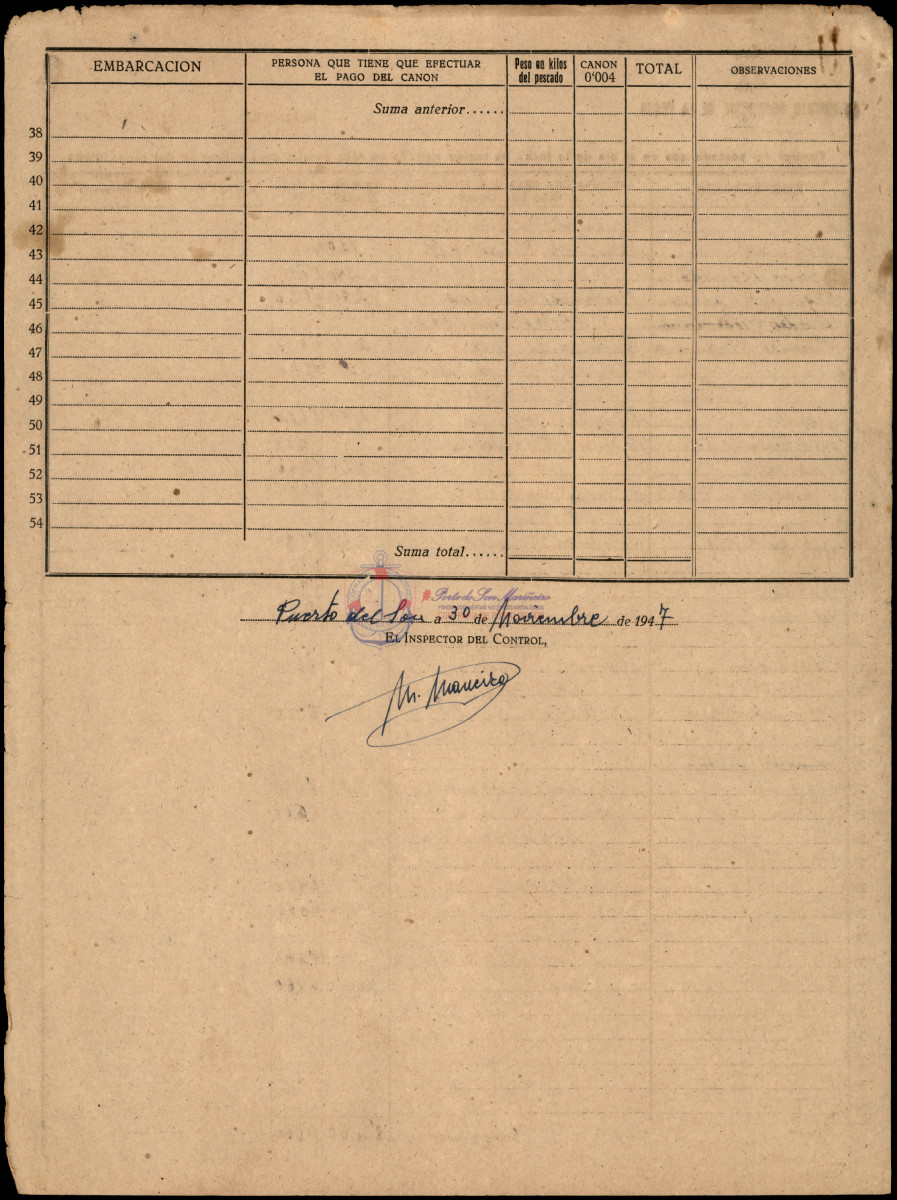 EMBARCACION PERSONA QUE TIENE QUE EFECTUAR EL PAGO DEL CANON Peso en kilos del pescado CANON 0'004 TOTAL OBSERVACIONES
Suma anterior......
38
39
40
41
42
43
44
45
46
47
48
49
50
51
52
53
54
Suma total......
Porto do Son Mariñeiro
Puerto del Son a 30 de Noviembre de 1947
EL INSPECTOR DEL CONTROL,
M. Maneiro